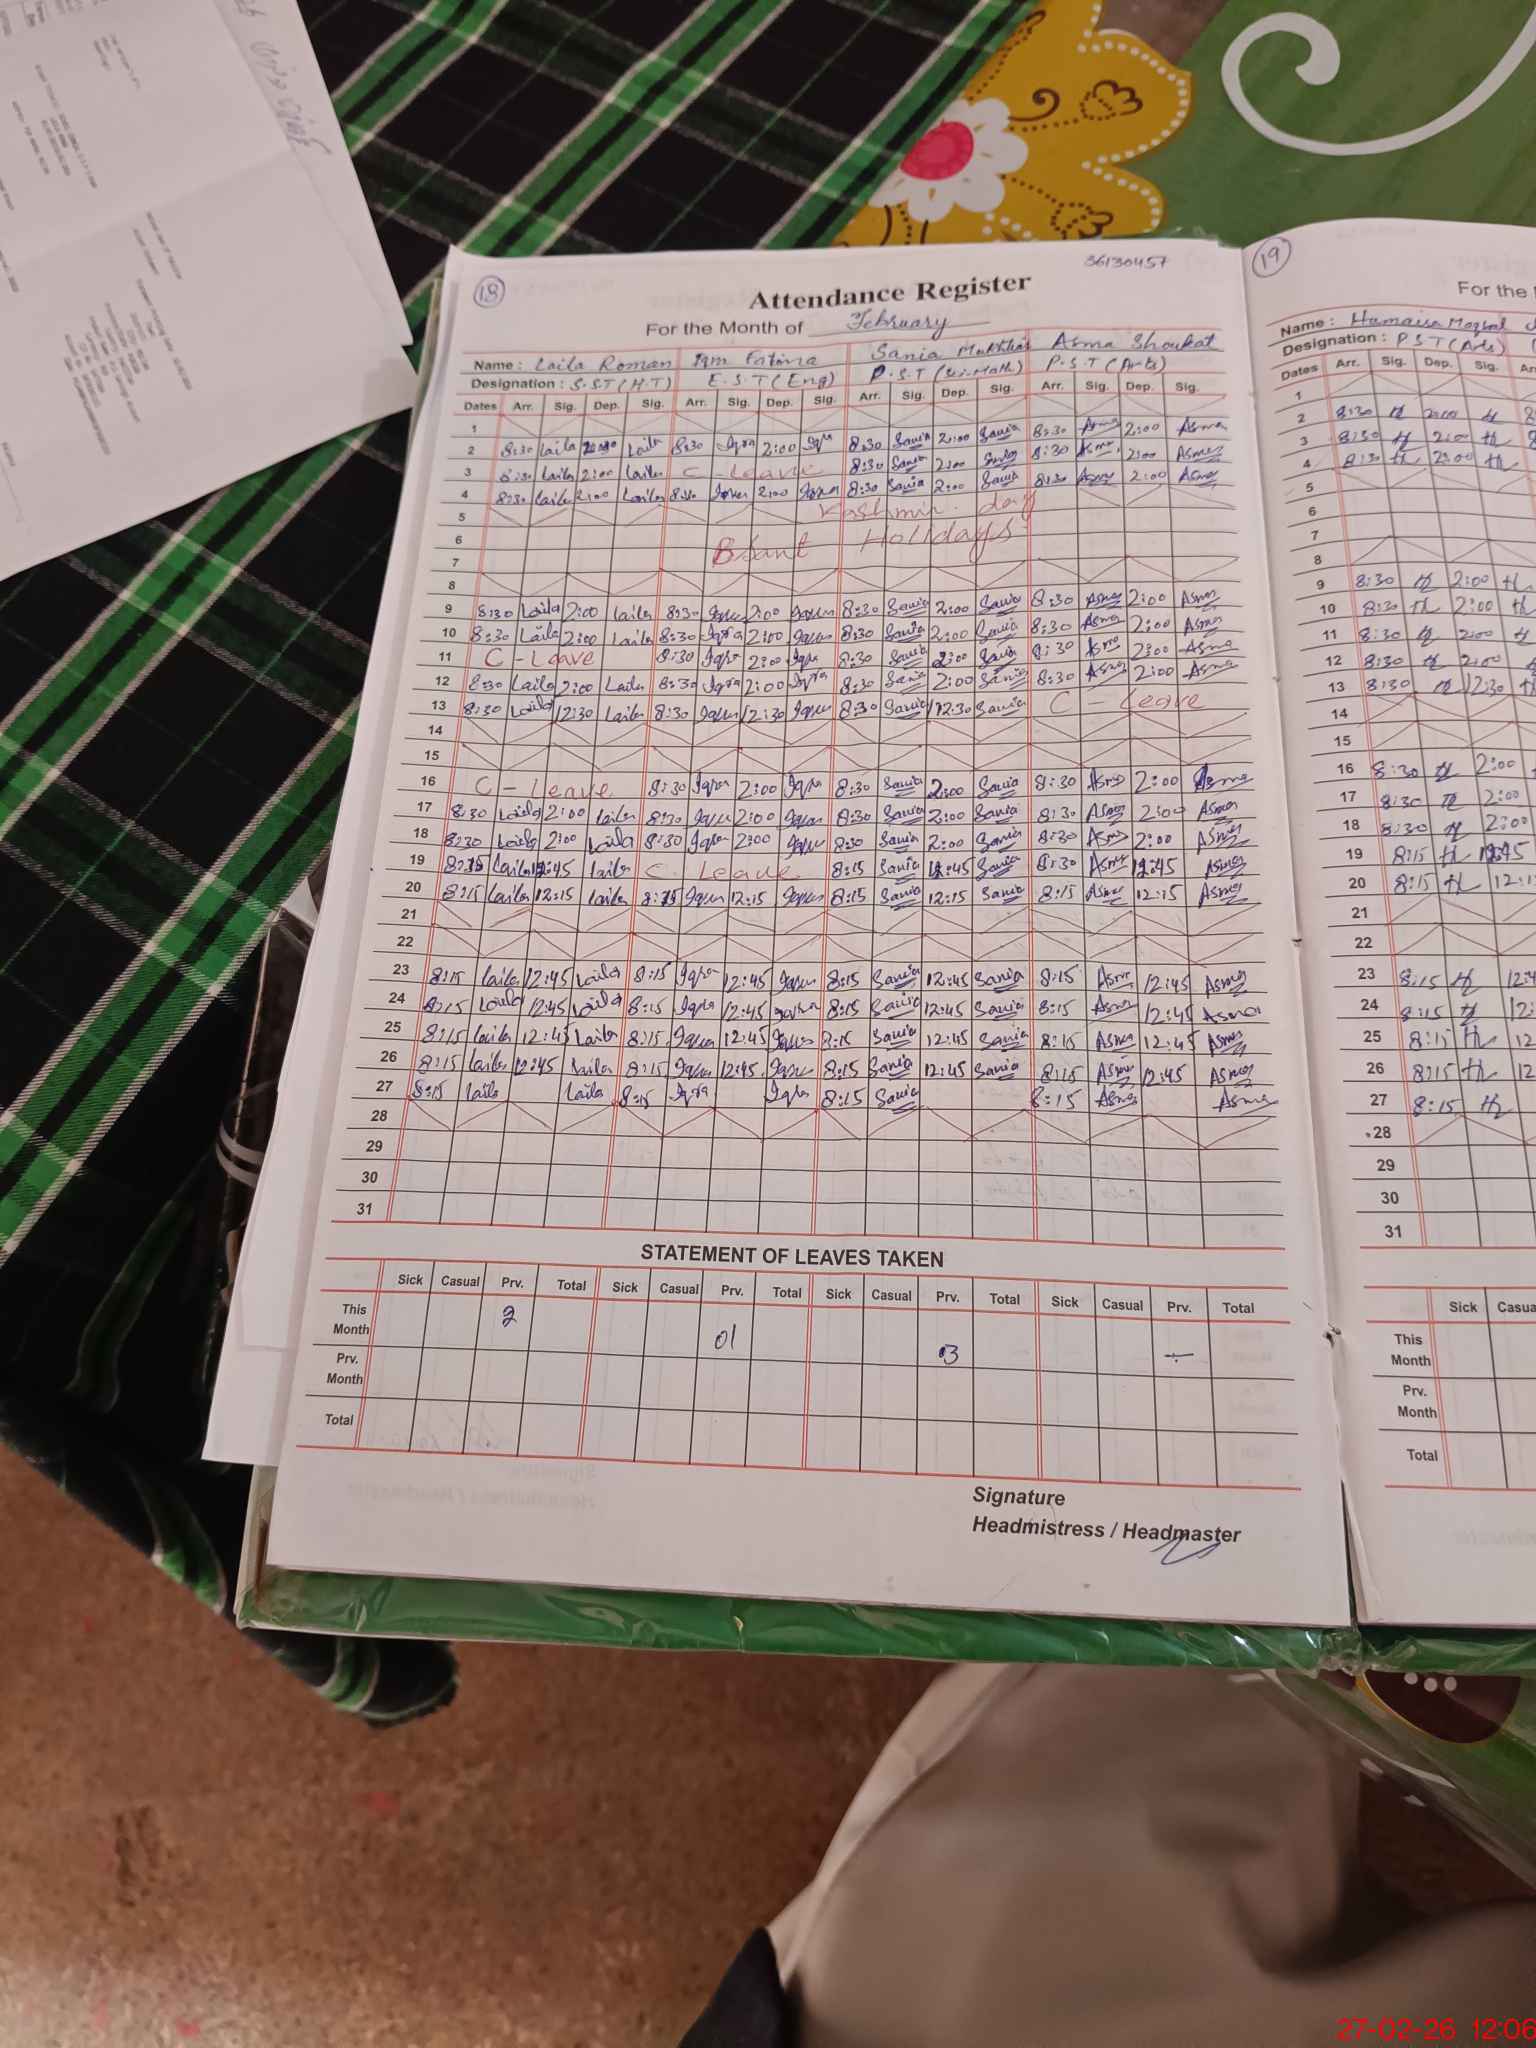 18
36130457
Attendance Register
For the Month of February
Name: Laila Roman Iqra Fatima Sania Mukhtar Asma Shoukat
Designation: S.ST (H.T) E.S.T (Eng) P.S.T (Sci-Math) P.S.T (Arts)
Dates Arr. Sig. Dep. Sig. Arr. Sig. Dep. Sig. Arr. Sig. Dep. Sig. Arr. Sig. Dep. Sig.
1
2 8:30 Laila 2:00 Laila 8:30 Iqra 2:00 Iqra 8:30 Sania 2:00 Sania 8:30 Asma 2:00 Asma
3 8:30 Laila 2:00 Laila C-Leave 8:30 Sania 2:00 Sania 8:30 Asma 2:00 Asma
4 8:30 Laila 2:00 Laila 8:30 Iqra 2:00 Iqra 8:30 Sania 2:00 Sania 8:30 Asma 2:00 Asma
5 Kashmir day
6 Basant Holidays
7
8
9 8:30 Laila 2:00 Laila 8:30 Iqra 2:00 Iqra 8:30 Sania 2:00 Sania 8:30 Asma 2:00 Asma
10 8:30 Laila 2:00 Laila 8:30 Iqra 2:00 Iqra 8:30 Sania 2:00 Sania 8:30 Asma 2:00 Asma
11 C-Leave 8:30 Iqra 2:00 Iqra 8:30 Sania 2:00 Sania 8:30 Asma 2:00 Asma
12 8:30 Laila 2:00 Laila 8:30 Iqra 2:00 Iqra 8:30 Sania 2:00 Sania 8:30 Asma 2:00 Asma
13 8:30 Laila 12:30 Laila 8:30 Iqra 12:30 Iqra 8:30 Sania 12:30 Sania C-Leave
14
15
16 C-Leave 8:30 Iqra 2:00 Iqra 8:30 Sania 2:00 Sania 8:30 Asma 2:00 Asma
17 8:30 Laila 2:00 Laila 8:30 Iqra 2:00 Iqra 8:30 Sania 2:00 Sania 8:30 Asma 2:00 Asma
18 8:30 Laila 2:00 Laila 8:30 Iqra 2:00 Iqra 8:30 Sania 2:00 Sania 8:30 Asma 2:00 Asma
19 8:15 Laila 12:45 Laila C. Leave 8:15 Sania 12:45 Sania 8:30 Asma 12:45 Asma
20 8:15 Laila 12:15 Laila 8:15 Iqra 12:15 Iqra 8:15 Sania 12:15 Sania 8:15 Asma 12:15 Asma
21
22
23 8:15 Laila 12:45 Laila 8:15 Iqra 12:45 Iqra 8:15 Sania 12:45 Sania 8:15 Asma 12:45 Asma
24 8:15 Laila 12:45 Laila 8:15 Iqra 12:45 Iqra 8:15 Sania 12:45 Sania 8:15 Asma 12:45 Asma
25 8:15 Laila 12:45 Laila 8:15 Iqra 12:45 Iqra 8:15 Sania 12:45 Sania 8:15 Asma 12:45 Asma
26 8:15 Laila 12:45 Laila 8:15 Iqra 12:45 Iqra 8:15 Sania 12:45 Sania 8:15 Asma 12:45 Asma
27 8:15 Laila Laila 8:15 Iqra Iqra 8:15 Sania 8:15 Asma Asma
28
29
30
31
STATEMENT OF LEAVES TAKEN
Sick Casual Prv. Total Sick Casual Prv. Total Sick Casual Prv. Total Sick Casual Prv. Total
This Month 2 01 03 -
Prv. Month
Total
Signature
Headmistress / Headmaster
19
For the
Name: Humaisa
Designation: PST (Arts)
Dates Arr. Sig. Dep. Sig.
1
2 8:30 H 2:00 H
3 8:30 H 2:00 H
4 8:30 H 2:00 H
5
6
7
8
9 8:30 H 2:00 H
10 8:30 H 2:00 H
11 8:30 H 2:00 H
12 8:30 H 2:00
13 8:30 H 12:30 H
14
15
16 8:30 H 2:00
17 8:30 H 2:00
18 8:30 H 2:00
19 8:15 H 12:45
20 8:15 H
21
22
23 8:15 H
24 8:15 H
25 8:15 H
26 8:15 H
27 8:15 H
28
29
30
31
Sick
This Month
Prv. Month
Total
27-02-26 12:06